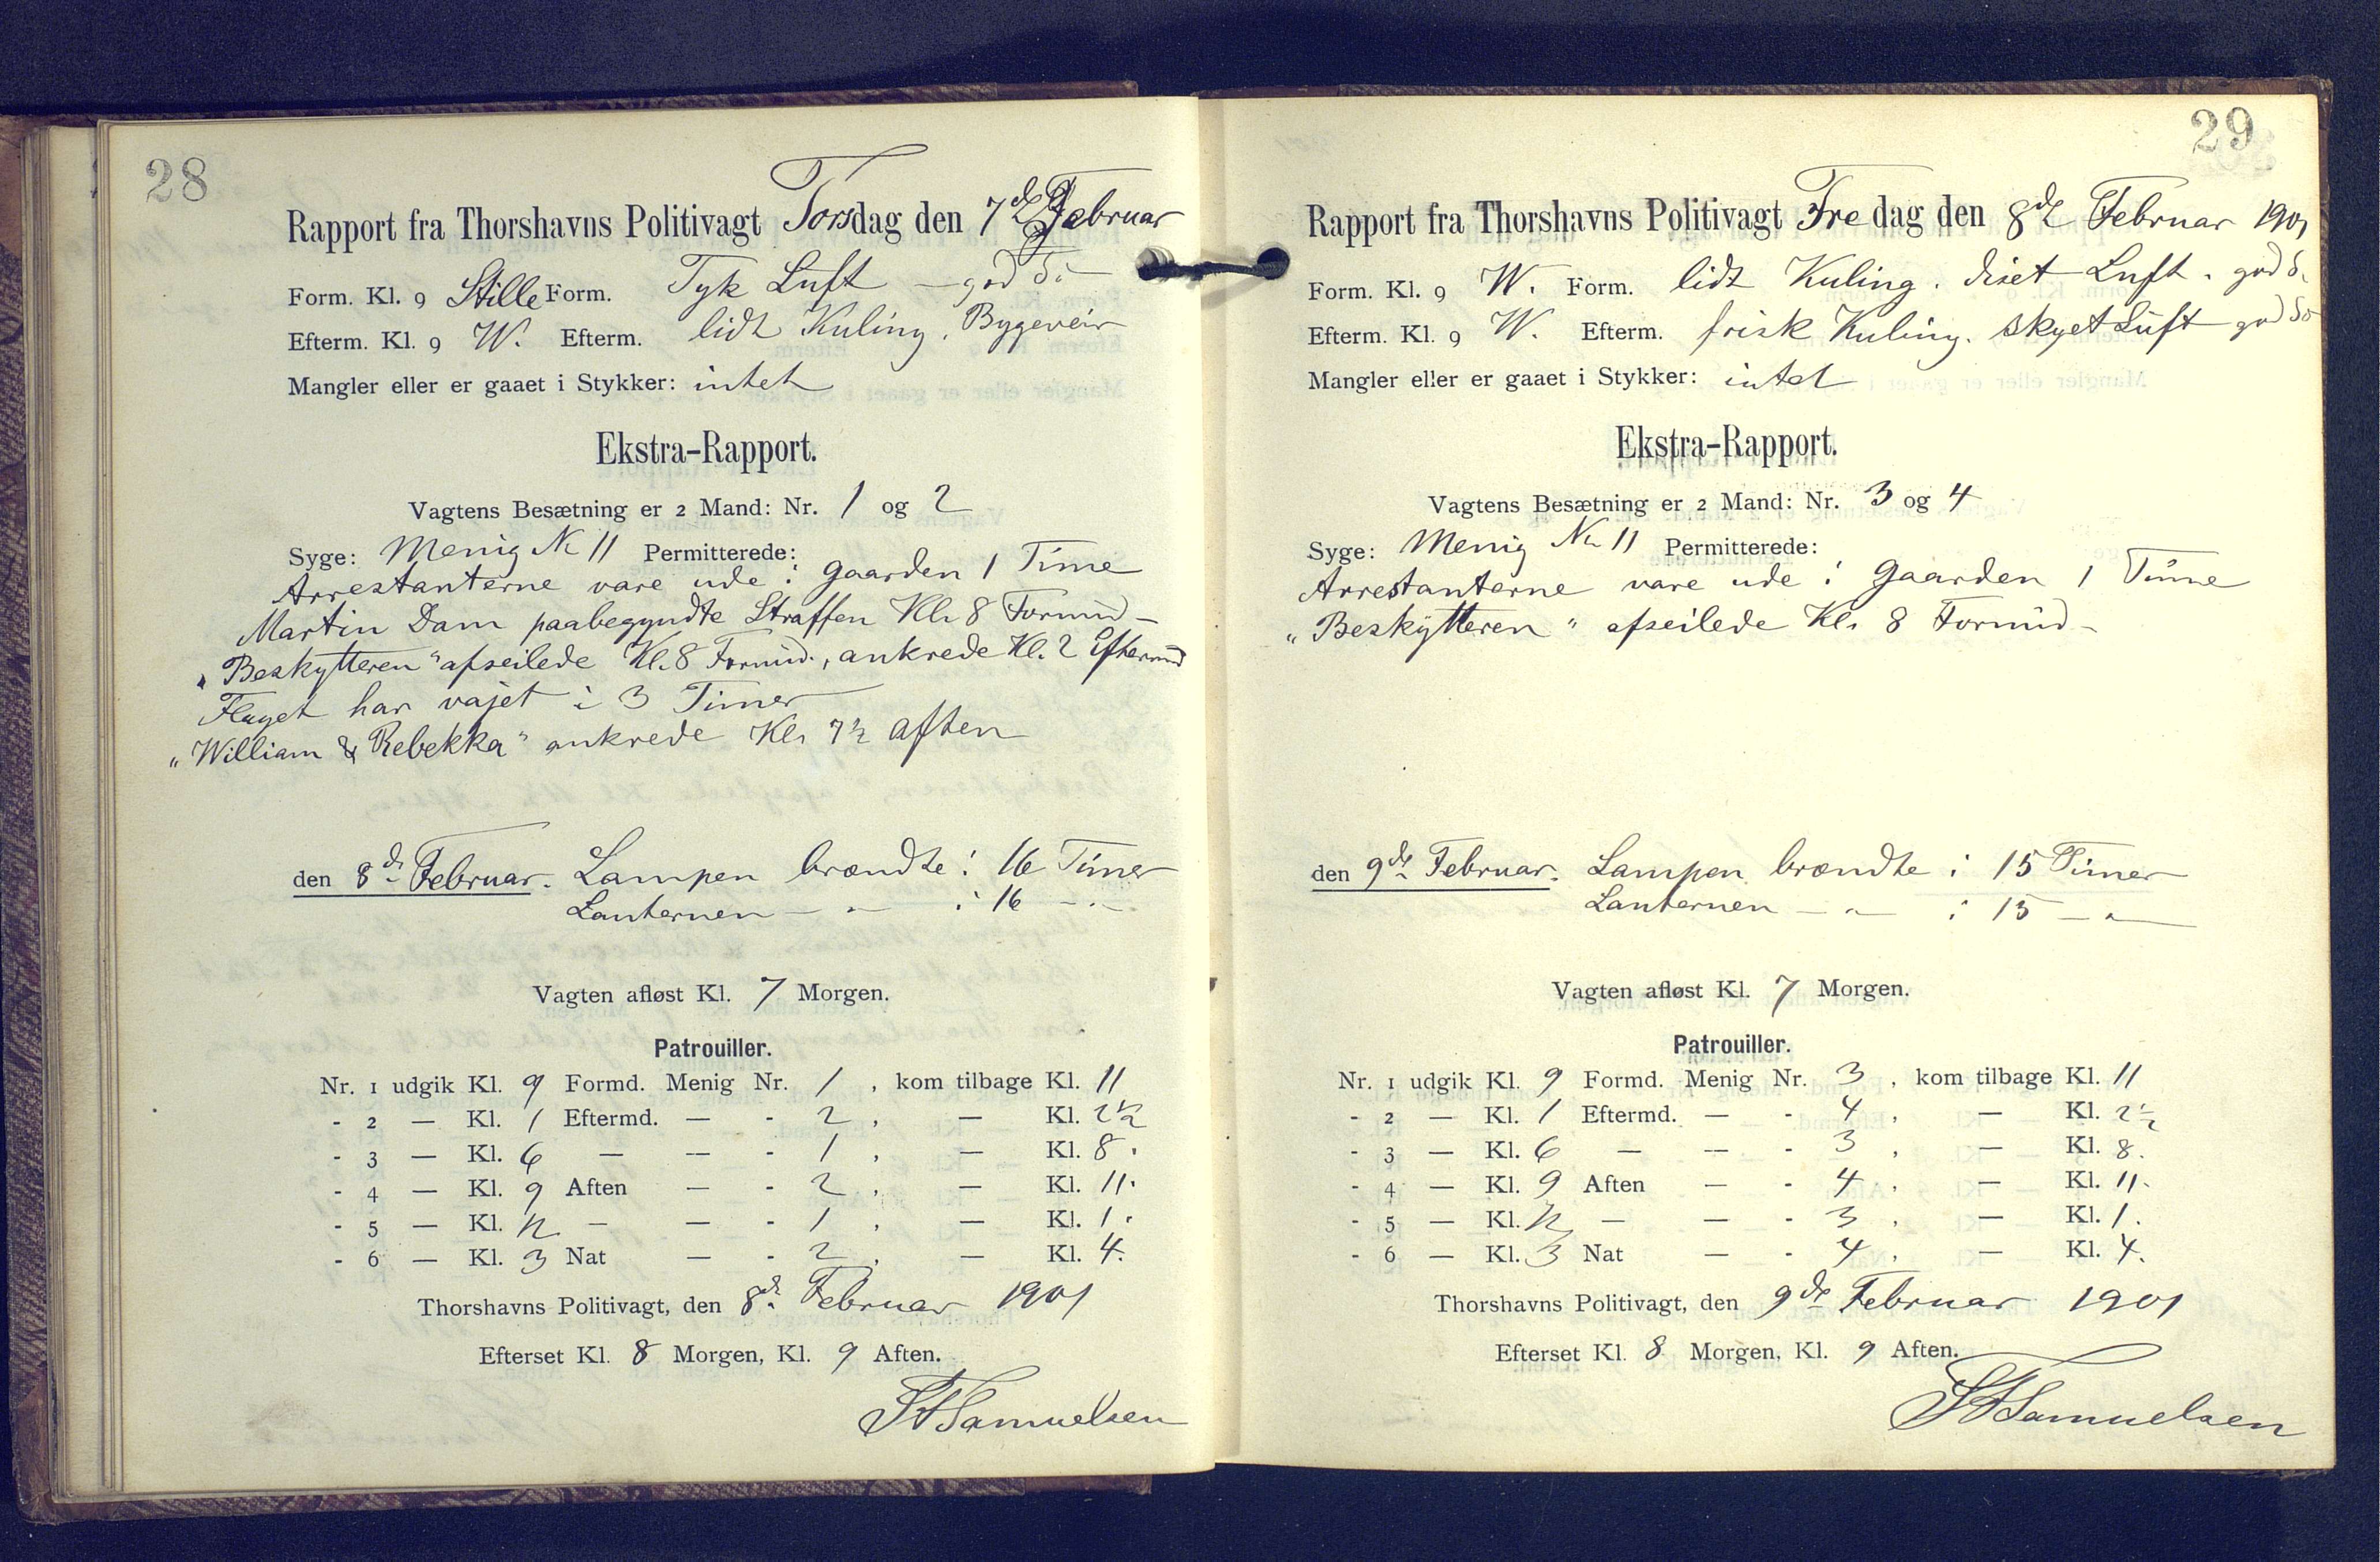 28
Rapport fra Thorshavns Politivagt Torsdag den 7de Februar
Form. Kl. 9 Stille Form. Tyk Luft – god So
Efterm. Kl. 9 W. Efterm. lidt Kuling. Bygeveir
Mangler eller er gaaet i Stykker: intet
Ekstra-Rapport.
Vagtens Besætning er 2 Mand: Nr. 1 og 2
Syge: Menig No 11 Permitterede:
Arrestanterne vare ude i Gaarden 1 Time
Martin Dam paabegyndte Straffen Kl. 8 Formid-
"Beskytteren" afseilede Kl. 8 Formid., ankrede Kl. 2 Eftermid
Flaget har vajet i 3 Timer
"William & Rebekka" ankrede Kl. 7½ Aften
den 8de Februar. Lampen brændte i 16 Timer
Lanternen – " – i 16 – " –
Vagten afløst Kl. 7 Morgen.
Patrouiller.
Nr. 1 udgik Kl. 9 Formd. Menig Nr. 1, kom tilbage Kl. 11
- 2 — Kl. 1 Eftermd. — - 2, — Kl. 2½
- 3 — Kl. 6 — — - 1, — Kl. 8.
- 4 — Kl. 9 Aften — - 2, — Kl. 11.
- 5 — Kl. 12 — — - 1, — Kl. 1.
- 6 — Kl. 3 Nat — - 2, — Kl. 4.
Thorshavns Politivagt, den 8de Februar 1901
Efterset Kl. 8 Morgen, Kl. 9 Aften.
Samuelsen
29
Rapport fra Thorshavns Politivagt Fredag den 8de Februar 1901
Form. Kl. 9 W. Form. lidt Kuling. diset Luft. god S.
Efterm. Kl. 9 W. Efterm. frisk Kuling. skyet Luft god So
Mangler eller er gaaet i Stykker: intet
Ekstra-Rapport.
Vagtens Besætning er 2 Mand: Nr. 3 og 4
Syge: Menig No 11 Permitterede:
Arrestanterne vare ude i Gaarden 1 Time
"Beskytteren" afseilede Kl. 8 Formid-
den 9de Februar. Lampen brændte i 15 Timer
Lanternen – " – i 15 – " –
Vagten afløst Kl. 7 Morgen.
Patrouiller.
Nr. 1 udgik Kl. 9 Formd. Menig Nr. 3, kom tilbage Kl. 11
- 2 — Kl. 1 Eftermd. — - 4, — Kl. 2½
- 3 — Kl. 6 — — - 3, — Kl. 8.
- 4 — Kl. 9 Aften — - 4, — Kl. 11.
- 5 — Kl. 12 — — - 3, — Kl. 1.
- 6 — Kl. 3 Nat — - 4, — Kl. 4.
Thorshavns Politivagt, den 9de Februar 1901
Efterset Kl. 8 Morgen, Kl. 9 Aften.
Samuelsen